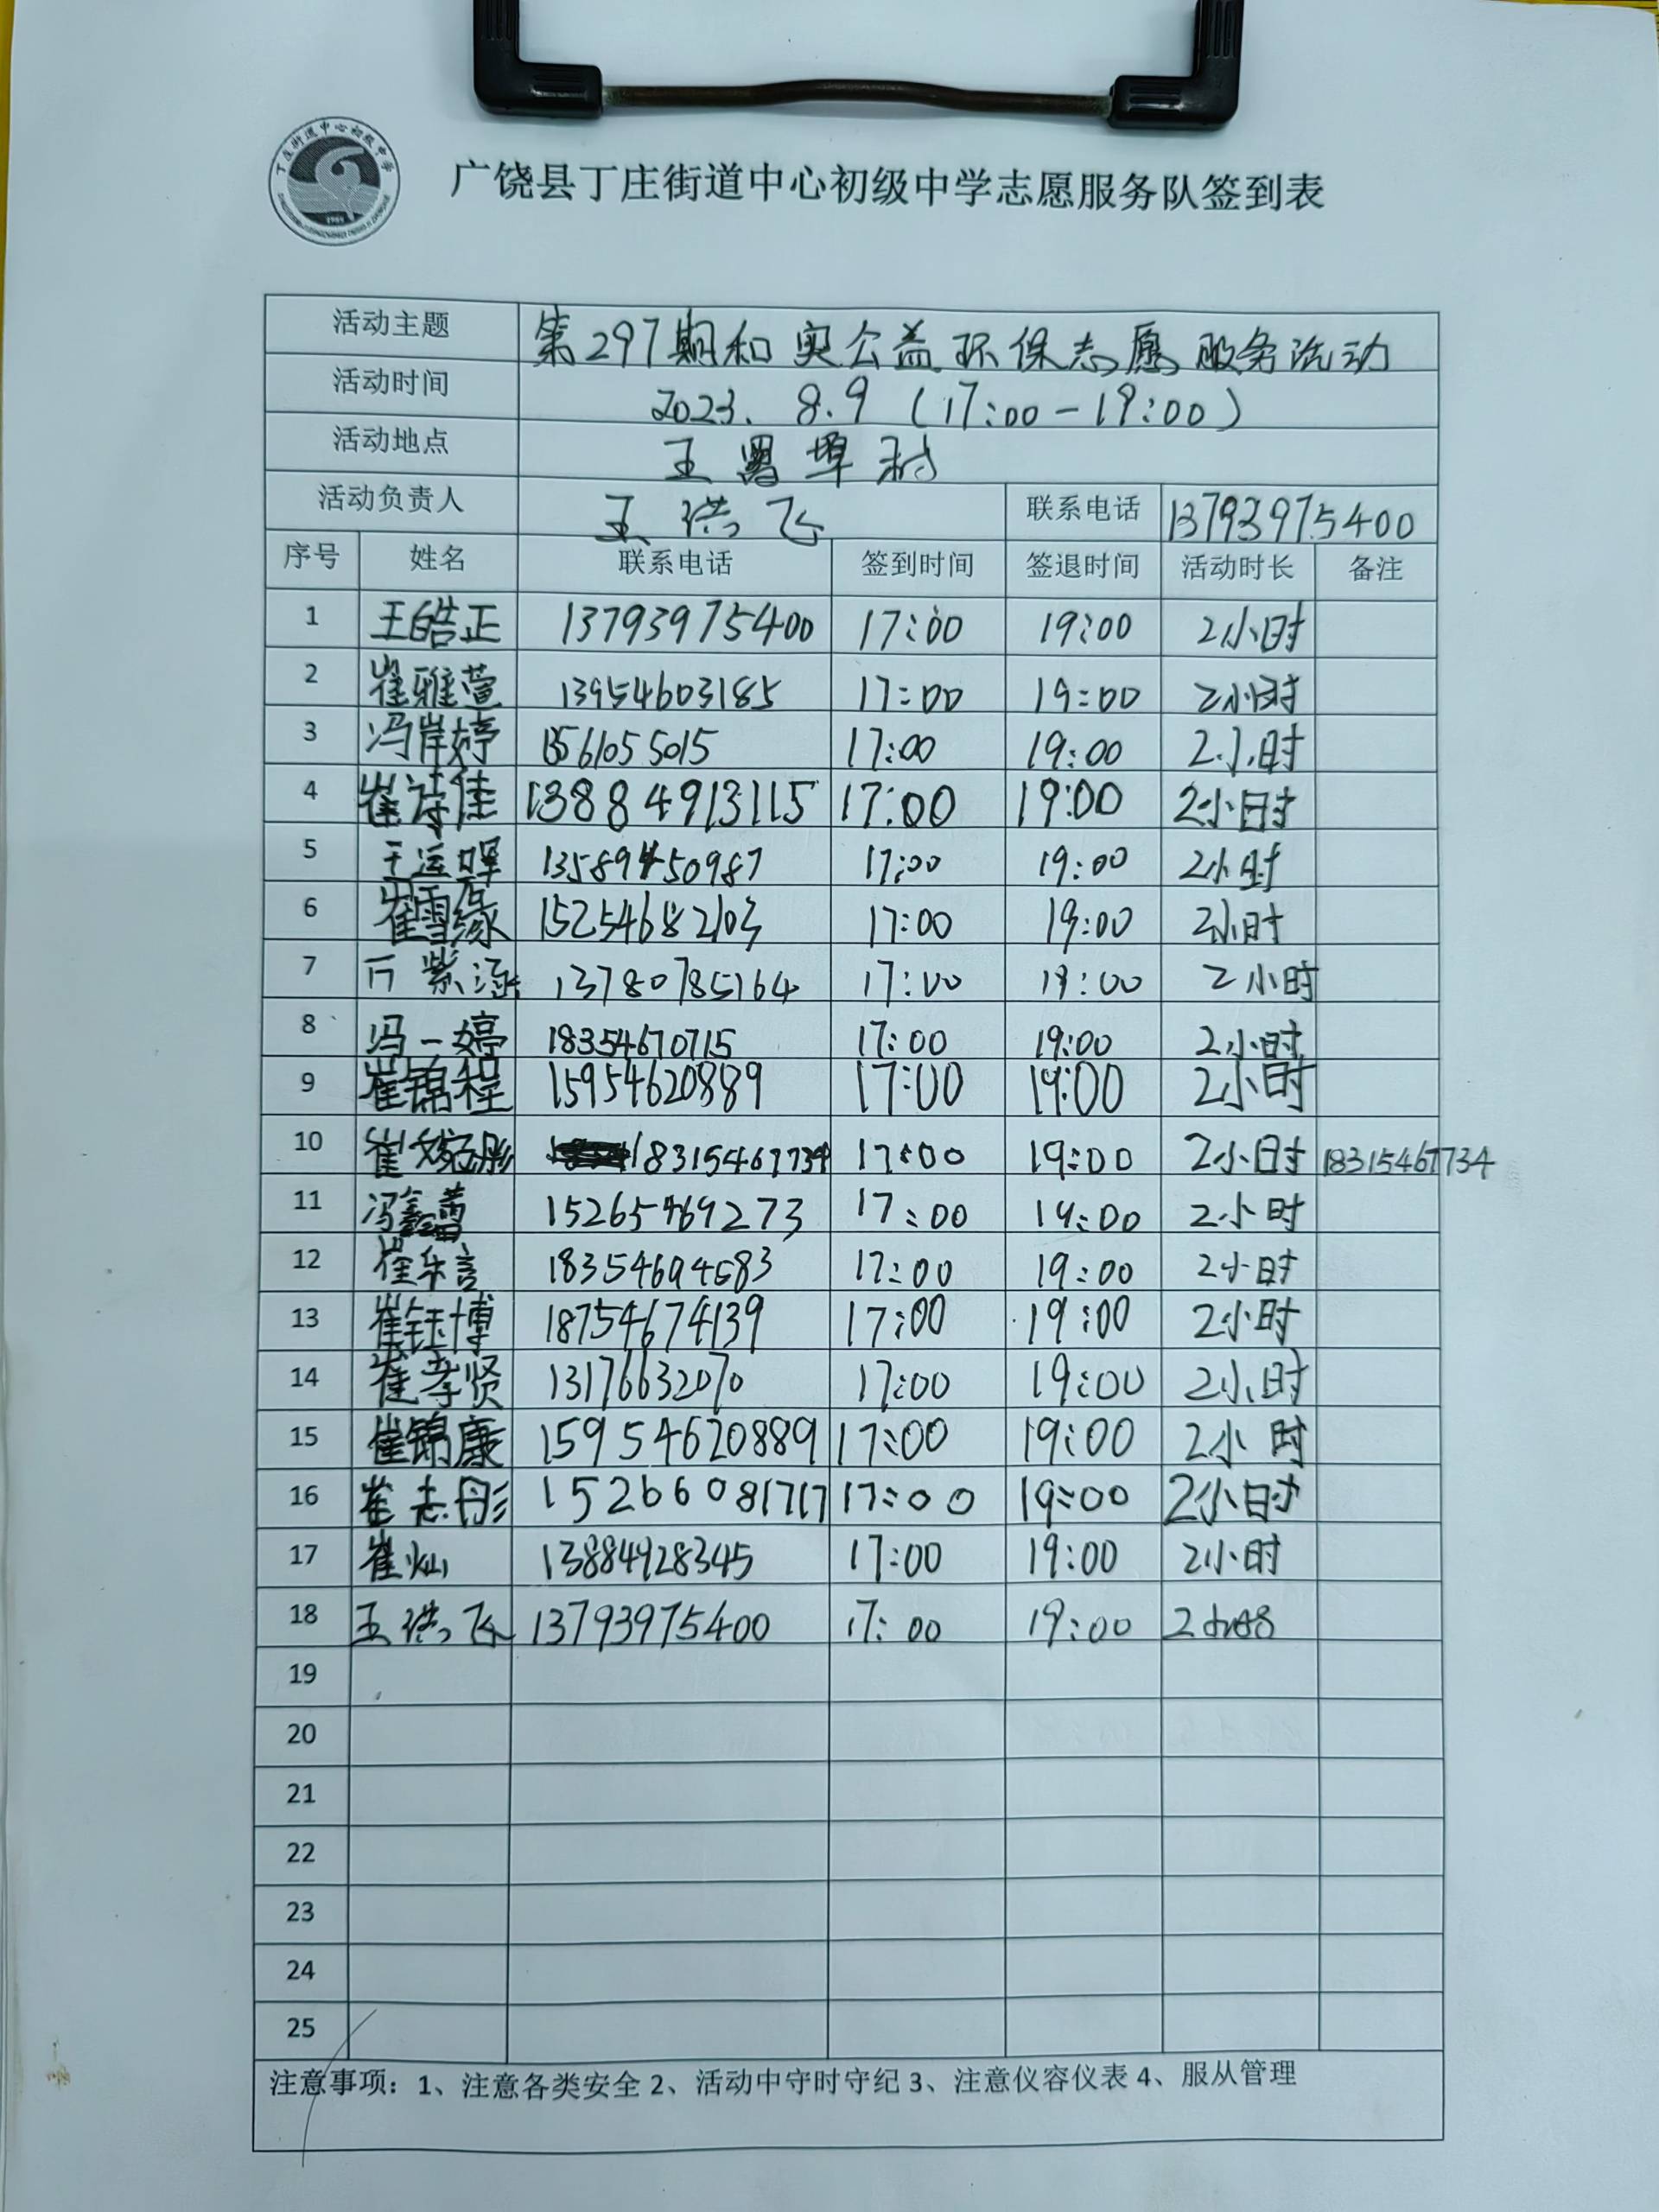 丁庄街道中心初级中学
广饶县丁庄街道中心初级中学志愿服务队签到表
活动主题 第297期和奥公益环保志愿服务活动
活动时间 2023. 8.9 (17:00-19:00)
活动地点 王署埠村
活动负责人 王洪飞 联系电话 13793975400
序号 姓名 联系电话 签到时间 签退时间 活动时长 备注
1 王皓正 13793975400 17:00 19:00 2小时
2 崔雅萱 13954603185 17:00 19:00 2小时
3 冯岸婷 17:00 19:00 2小时
4 崔诗佳 13884913115 17:00 19:00 2小时
5 13589450987 17:00 19:00 2小时
6 崔雪缘 15254682103 17:00 19:00 2小时
7 紫涵 13780785164 17:00 19:00 2小时
8 冯一婷 18354670715 17:00 19:00 2小时
9 崔锦程 15954620889 17:00 19:00 2小时
10 崔婉彤 18315467734 17:00 19:00 2小时 18315467734
11 冯鑫蕾 15265469273 17:00 19:00 2小时
12 18354694583 17:00 19:00 2小时
13 崔钰博 18754674139 17:00 19:00 2小时
14 崔孝贤 13176632070 17:00 19:00 2小时
15 崔锦康 15954620889 17:00 19:00 2小时
16 崔志彤 15266081717 17:00 19:00 2小时
17 崔灿 13884928345 17:00 19:00 2小时
18 王洪飞 13793975400 17:00 19:00
19
20
21
22
23
24
25
注意事项：1、注意各类安全 2、活动中守时守纪 3、注意仪容仪表 4、服从管理